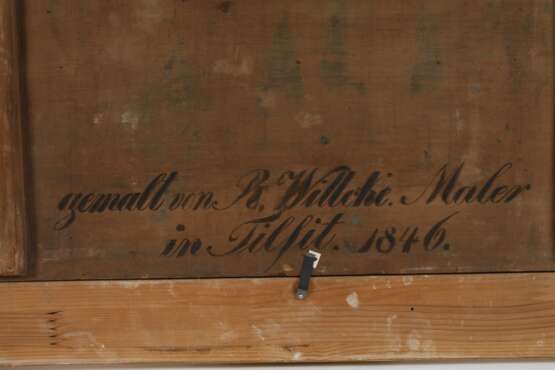 gemalt von B. Willcke. Maler
in Tilsit. 1846.